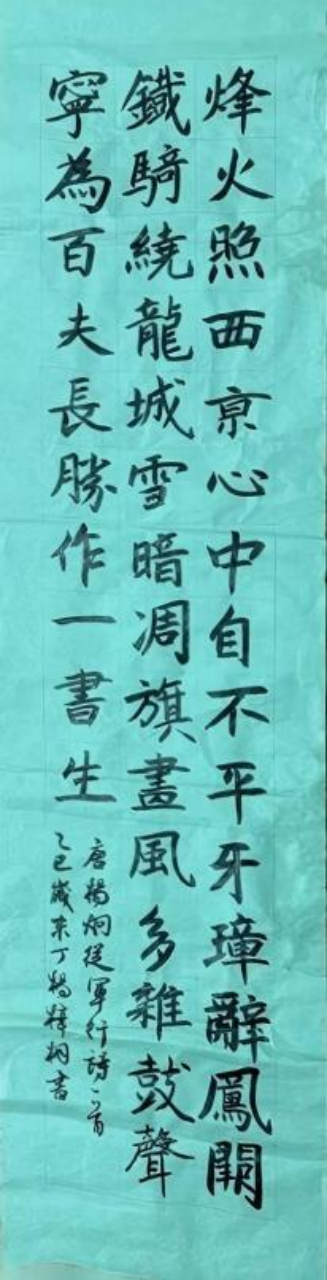 烽火照西京心中自不平牙璋辭鳳闕
鐵騎繞龍城雪暗凋旗畫風多雜鼓聲
寧為百夫長勝作一書生
唐楊炯從軍行詩一首
乙巳歲末丁楊梓炯書